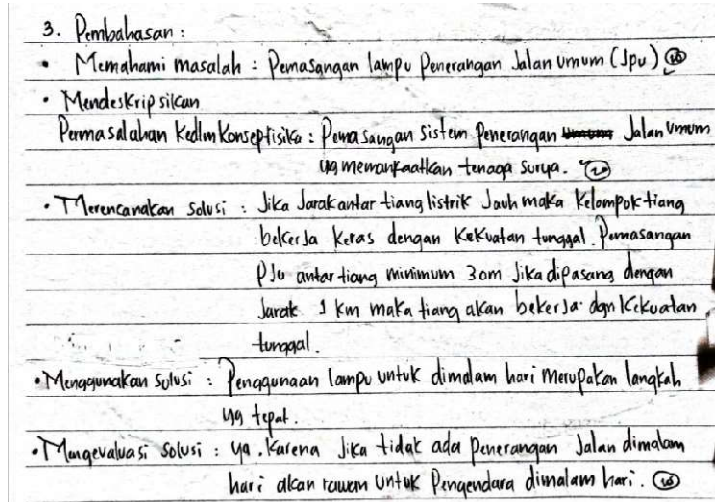 3. Pembahasan :
• Memahami masalah : Pemasangan lampu Penerangan Jalan umum (Jpu)
• Mendeskripsikan
Permasalahan kedlm konsep fisika : Pemasangan sistem Penerangan Jalan Umum
yg memanfaatkan tenaga surya.
• Merencanakan solusi : Jika Jarak antar tiang listrik Jauh maka kelompok tiang
bekerja keras dengan kekuatan tunggal. Pemasangan
PJu antar tiang minimum 30m Jika dipasang dengan
Jarak 1 km maka tiang akan bekerja dgn kekuatan
tunggal.
• Menggunakan solusi : Penggunaan lampu untuk dimalam hari merupakan langkah
yg tepat.
• Mengevaluasi solusi : ya. Karena Jika tidak ada penerangan Jalan dimalam
hari akan rawan untuk Pengendara dimalam hari.